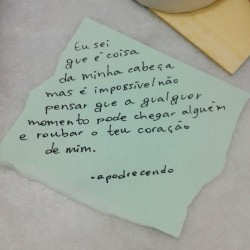 Eu sei
que é coisa
da minha cabeça
mas é impossível não
pensar que a qualquer
momento pode chegar alguém
e roubar o teu coração
de mim.
-apodrecendo